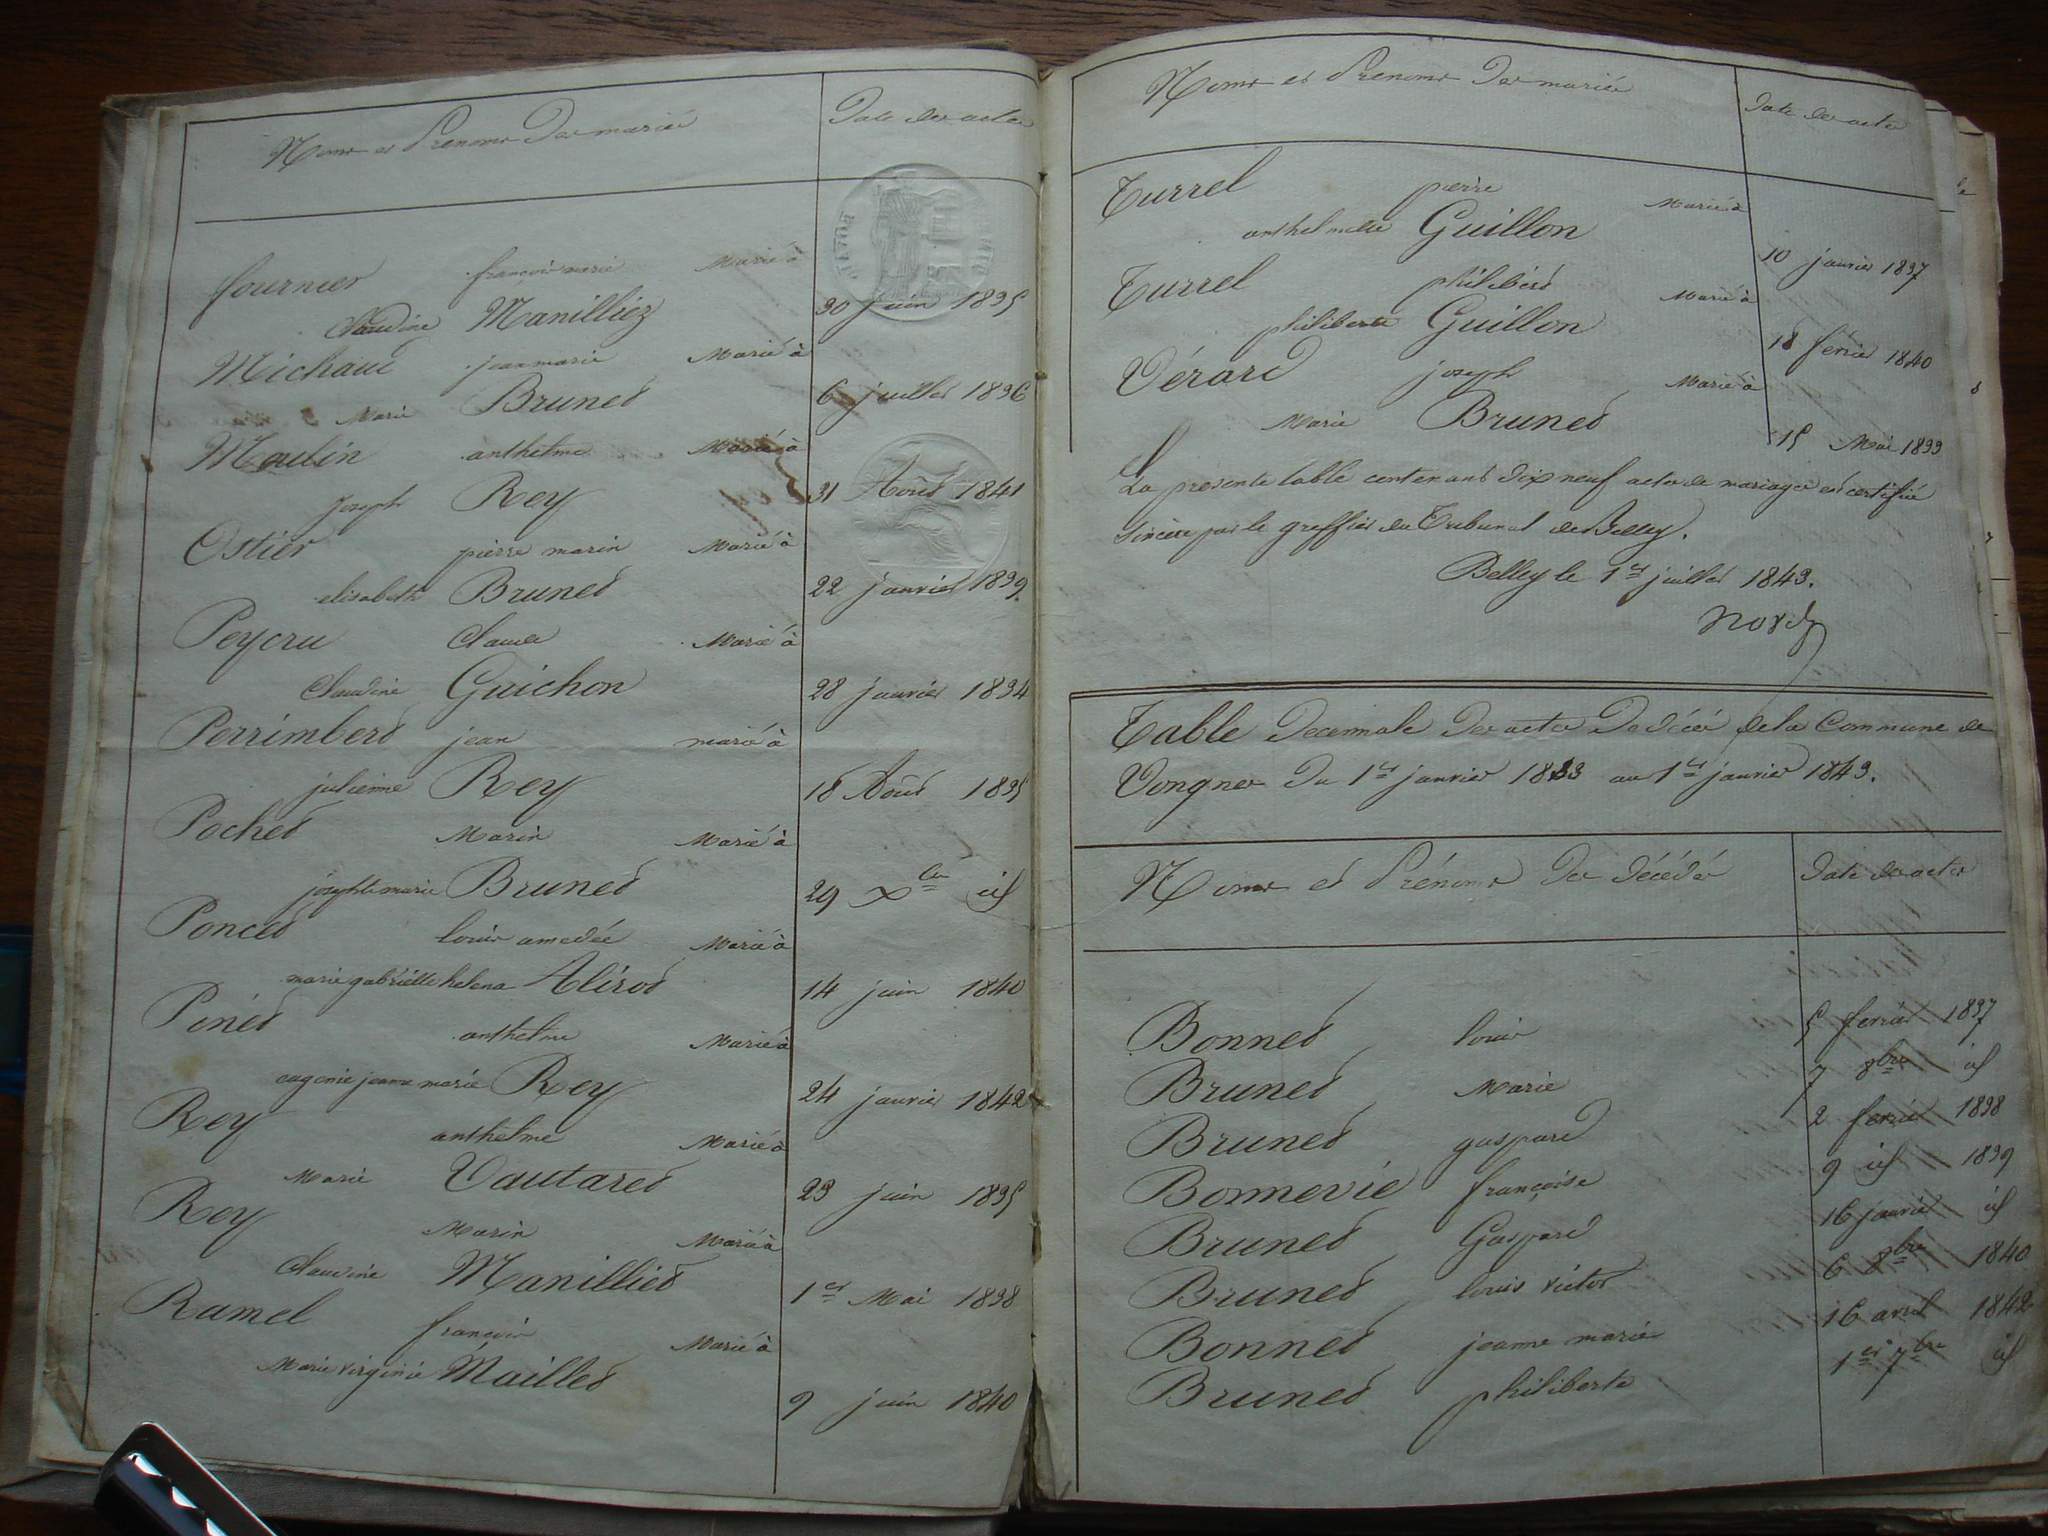 Noms et Prenoms Des mariés
Date des actes
fournier françois marie Marié à
Claudine Manilliez 30 juin 1835
Michaud jean marie Marié à
Marie Brunet 6 juillet 1836
Moulin anthelme Marié à
joseph Rey 31 Août 1841
Ostier pierre marin Marié à
elisabeth Brunet 22 janvier 1839
Peycru Claude Marié à
Claudine Guichon 28 janvier 1834
Perrimbert jean marié à
julienne Rey 18 Août 1835
Pochet Marin Marié à
josephte marie Brunet 29 Xbre id
Poncet louis amedée Marié à
marie gabrielle helena Alirot 14 juin 1840
Pinet anthelme Marié à
eugenie jeanne marie Rey 24 janvier 1842
Rey anthelme Marié à
Marie Vautaret 23 juin 1835
Rey Marin Marié à
Claudine Manilliet 1er Mai 1838
Ramel françois Marié à
Marie virginie Maillet 9 juin 1840
Noms et Prenoms Des mariés
Date des actes
Turrel pierre Marié à
anthelmette Guillon 10 janvier 1837
Turrel philibert Marié à
philiberte Guillon 18 fevrier 1840
Vérard joseph Marié à
Marie Brunet 15 Mai 1833
La présente table contenant dix neuf actes de mariages est certifiée
sincère par le greffier du Tribunal de Belley.
Belley le 1er juillet 1843.
Table Decennale Des actes De décès de la Commune de
Vongnes Du 1er janvier 1833 au 1er janvier 1843.
Noms et Prénoms Des décédés
Date des actes
Bonnet louis 5 fevrier 1837
Brunet Marie 7 8bre id
Brunet gaspard 2 fevrier 1838
Bonnevie françoise 9 id 1839
Brunet Gaspard 16 janvier id
Brunet louis victor 6 8bre 1840
Bonnet jeanne marie 16 avril 1842
Brunet philiberte 1er 7bre id